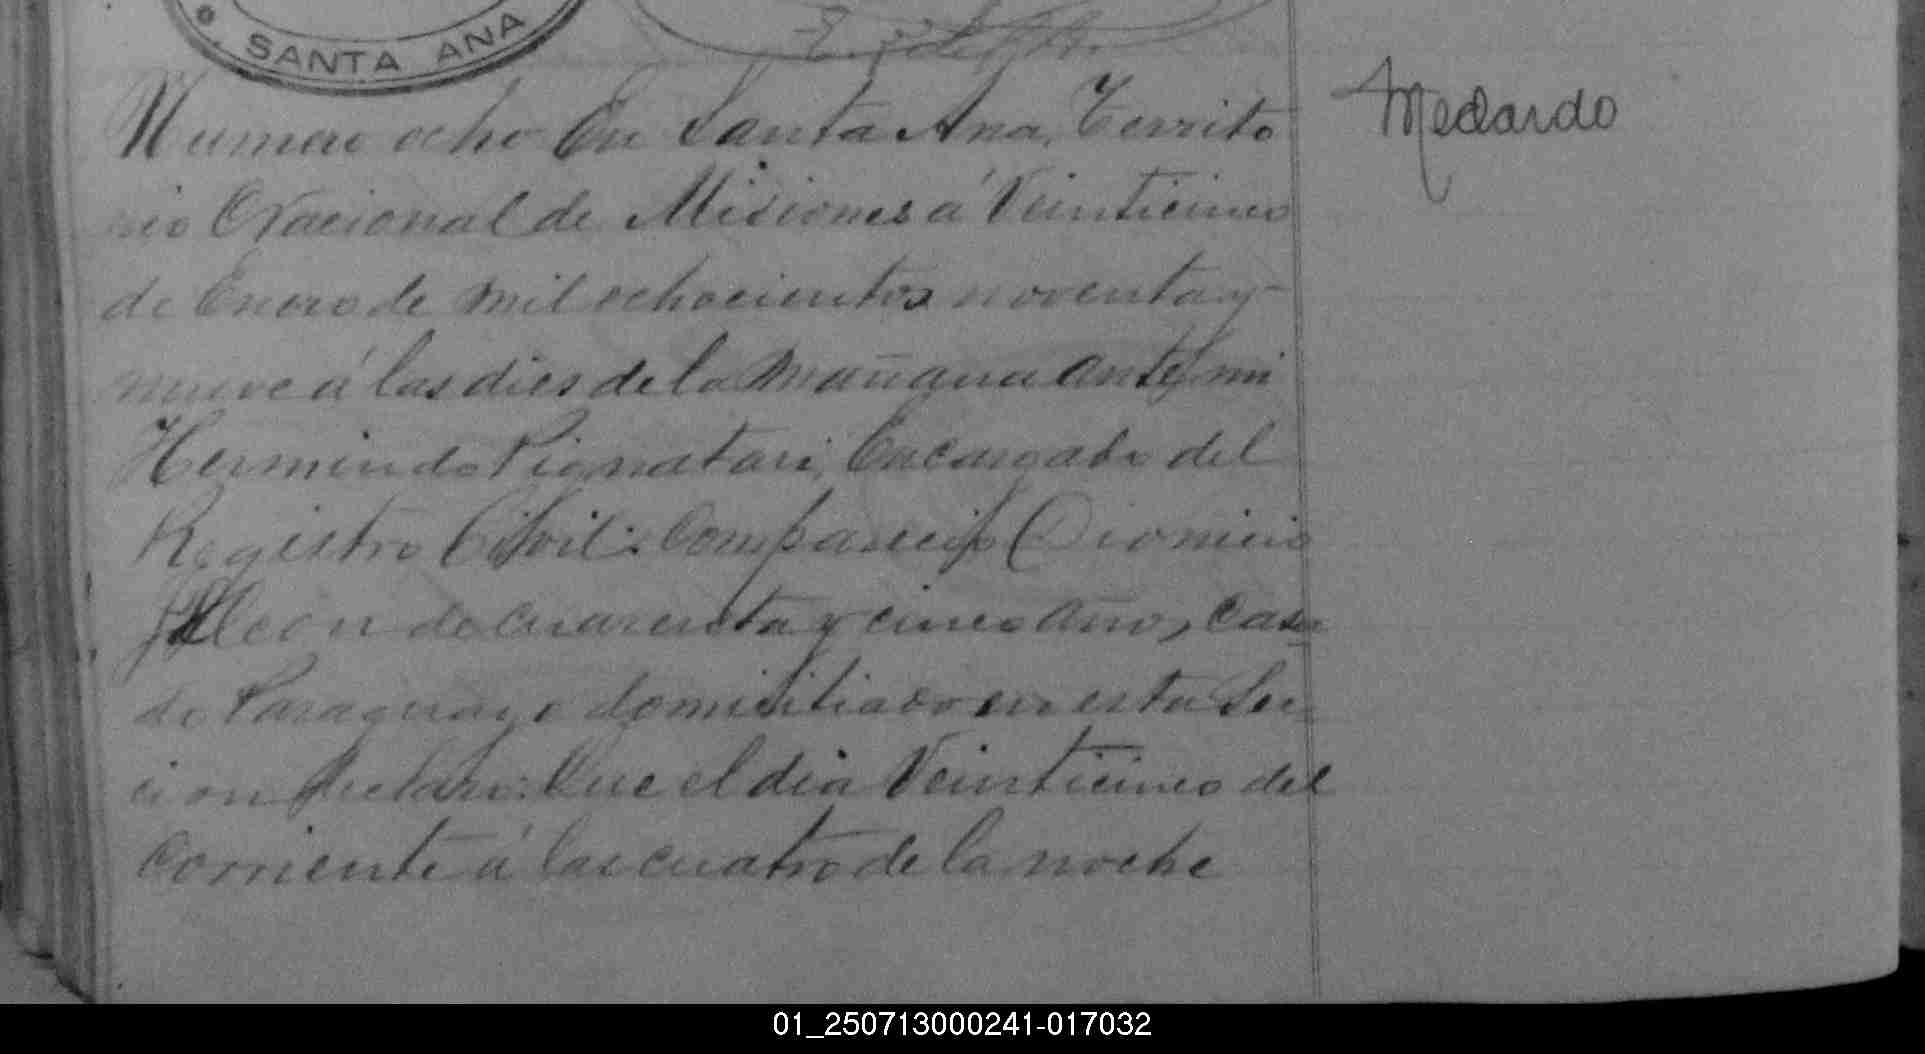 SANTA ANA
Numero ocho En Santa Ana, Territo
rio Nacional de Misiones á Veinticinco
de Enero de mil ochocientos noventa y
nueve á las dies de la mañana ante mi
Hermindo Pignatari, Encargado del
Registro Civil: Comparecio Dionicio
de cuarenta y cinco años, casa
do Paraguayo domisiliado en esta Sec
cion declaro: Que el dia Veinticinco del
corriente á las cuatro de la noche
Medardo
01_250713000241-017032